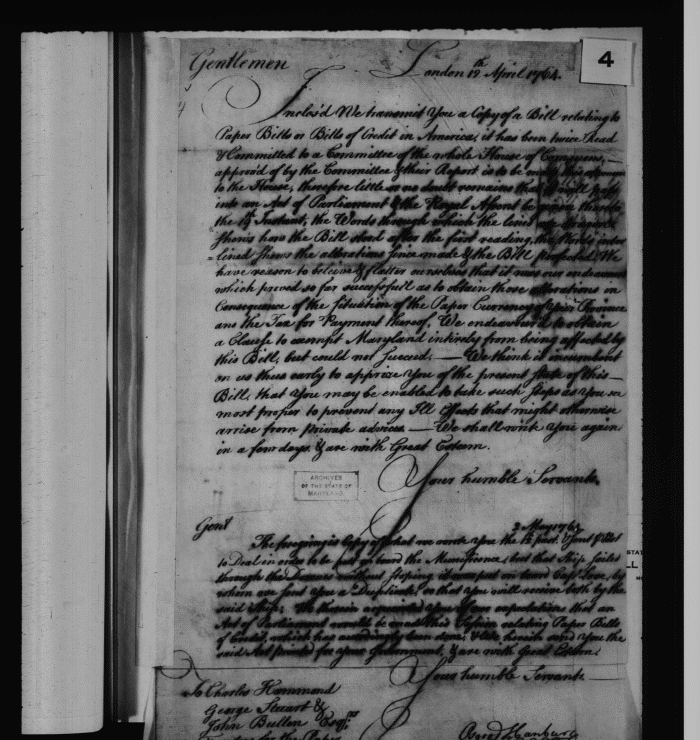 4
Gentlemen London 12th April 1764.
Inclos'd We transmit You a Copy of a Bill relating to
Paper Bills or Bills of Credit in America; it has been twice Read
& Committed to a Committee of the whole House of Commons,
approv'd of by the Committee & their Report is to be made this
to the House, therefore little or no doubt remains that it will pass
into an Act of Parliament & the Royal Assent be given thereto
the 19 Instant, the Words through which the lines are drawn
Shews how the Bill stood after the first reading, the Words inter
=lined shews the alterations since made & the Bill perfected. We
have reason to beleive & flatter ourselves that it was our endeavours
which proved so far successfull as to obtain those alterations in
Consequence of the Situation of the Paper Currency of your Province
and the Tax for Payment thereof. We endeavour'd to obtain
a Clause to exempt Maryland intirely from being affected by
this Bill, but could not Succeed. — We think it incumbent
on us thus early to apprize You of the present State of this
Bill, that You may be enabled to take such Steps as You see
most proper to prevent any Ill Effects that might otherwise
arrise from private advices — We shall write You again
in a few days, & are with Great Esteem.
Your humble Servants.
ARCHIVES
OF THE STATE OF
MARYLAND
Gent 2 May 1764
The foregoing is Copy of what we wrote you the 12 past. & sent
to Deal in order to be put on board the Munificence, but that Ship sailed
through the Downes without stoping it was put on board Cap. Love, by
whom we sent you a Duplicate, so that you will receive both by the
said Ship; We therein acquainted you of our expectations that an
Act of Parliament would be made this Session relating Paper Bills
of Credit, which has accordingly been done, & We herein send you the
said Act printed for your Government, & are with Great Esteem.
Your humble Servants.
To Charles Hammond
George Steuart &
John Bullen Esqrs
for the Paper
Osgood Hanbury